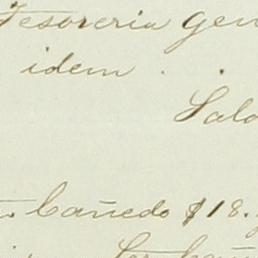 Tesoreria gen
idem .
Salo
Cañedo $18.